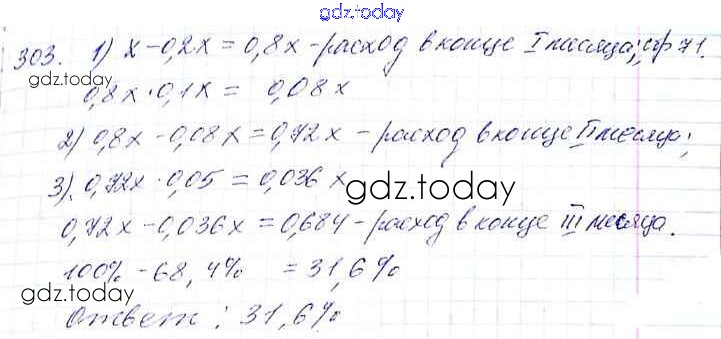 gdz.today
303. 1) x - 0,2x = 0,8x - расход в конце I месяца; стр 71.
gdz.today
0,8x · 0,1x = 0,08x
2) 0,8x - 0,08x = 0,72x - расход в конце II месяца;
3) 0,72x · 0,05 = 0,036x
gdz.today
0,72x - 0,036x = 0,684 - расход в конце III месяца.
100% - 68,4% = 31,6%
gdz.today
gdz.today
Ответ: 31,6%